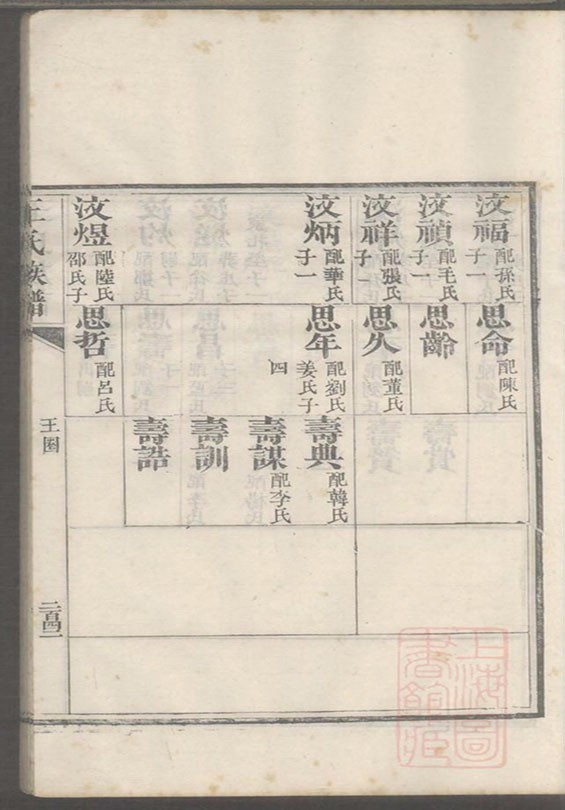 汶福
配孫氏
子一
汶禎
配毛氏
子一
汶祥
配張氏
子一
汶炳
配華氏
子一
汶煜
配陸氏
邵氏子
思命
配陳氏
思齡
思久
配董氏
思年
配劉氏
姜氏子
四
思哲
配呂氏
壽典
配韓氏
壽謀
配李氏
壽訓
壽誥
王氏族譜
上海圖
書館藏